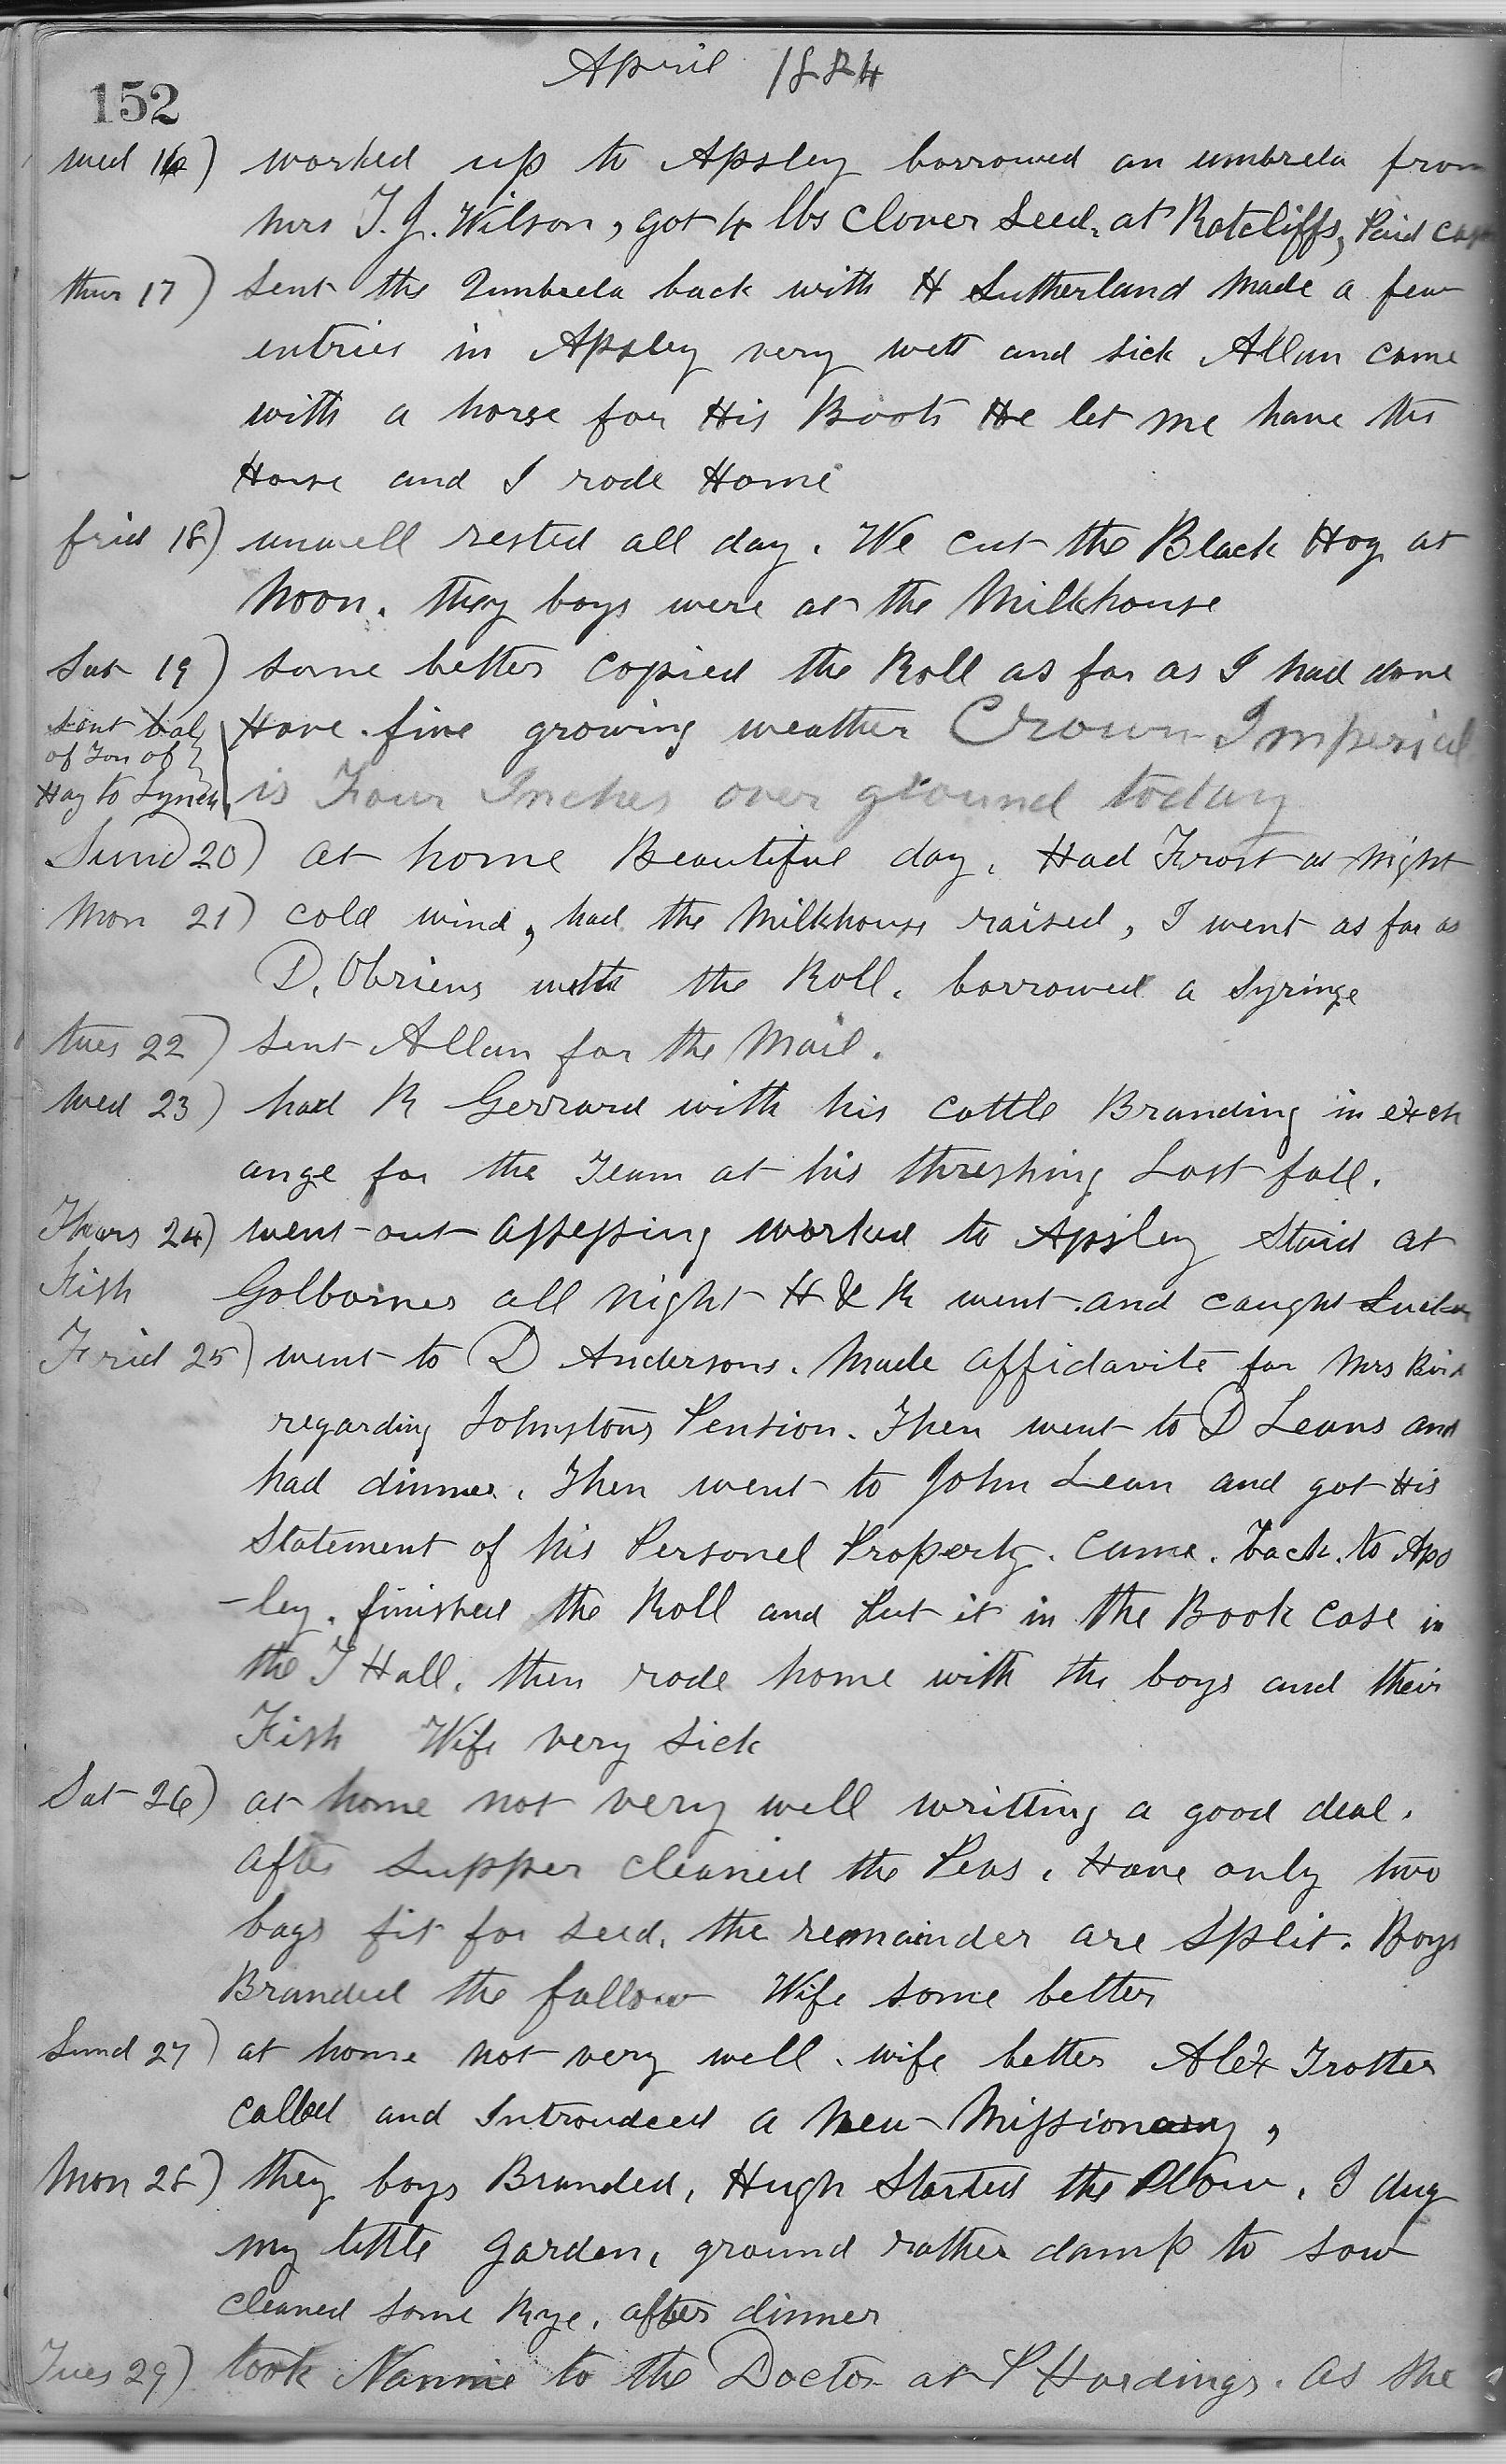 April 1884
152
Wed 16) worked up to Apsley borrowed an umbrela from
Mrs T. G. Wilson, got 4 lbs Clover Seed. at Ratcliffs, Paid cash
thur 17) Sent the Umbrela back with H Sutherland Made a few
entries in Apsley very wett and sick Allan came
with a horse for His Boots He let me have the
Horse and I rode Home
frid 18) unwell rested all day. We cut the Black Hog at
Noon. they boys were at the Milkhouse
Sat 19) some better copied the Roll as far as I had done
sent bal of Ton of Hay to Lynch
Have fine growing weather Crown Imperial
is Four Inches over ground today
Sund 20) at home Beautiful day. Had Frost at Night
Mon 21) cold wind, had the Milkhouse raised, I went as far as
D. Obriens with the Roll. borrowed a Syringe
tues 22) Sent Allan for the Mail.
Wed 23) had R Gerrard with his cattle Branding in exch
ange for the Team at his threshing Last fall.
Thurs 24) went out assessing worked to Apsley Staid at
Fish Golbornes all Night H & R went and caught
Frid 25) went to D Andersons. Made affidavite for Mrs Bird
regarding Johnstons Pension. Then went to D Leans and
had dinner. Then went to John Lean and got His
Statement of his Personel Property. Came. back. to Aps
-ley. finished the Roll and Put it in the Book case in
the T Hall. then rode home with the boys and their
Fish Wife very sick
Sat 26) at home not very well writting a good deal.
after Supper cleaned the Peas. Have only two
bags fit for seed. the remainder are split. Boys
Branded the fallow Wife some better
Sund 27) at home not very well. wife better Alex Trotter
called and Introudced a New Missionary,
Mon 28) they boys Branded, Hugh Started the Plow. I dug
my little garden, ground rather damp to sow
cleaned some Rye. after dinner
Tues 29) took Nannie to the Doctor at P Hardings. as She